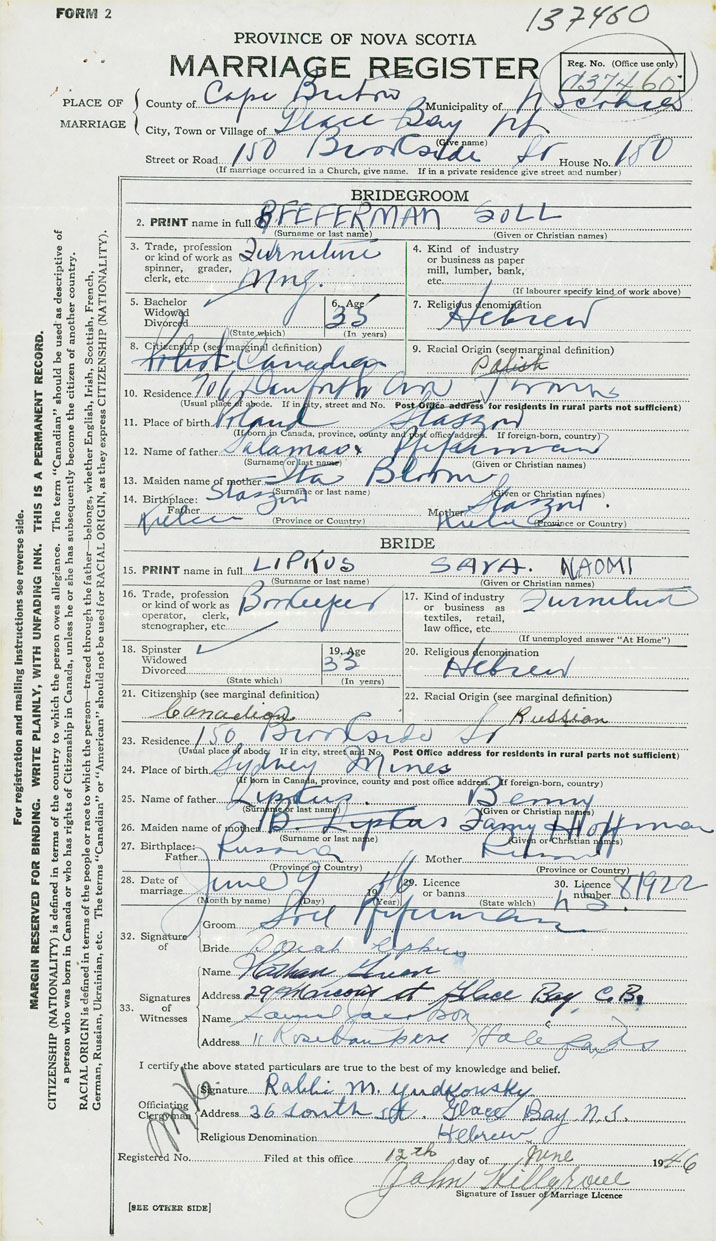 FORM 2
137460
PROVINCE OF NOVA SCOTIA
MARRIAGE REGISTER
Reg. No. (Office use only)
037460
PLACE OF MARRIAGE
County of Cape Breton Municipality of
City, Town or Village of Glace Bay
(Give name)
Street or Road 150 Brookside St House No. 150
(If marriage occurred in a Church, give name. If in a private residence give street and number)
BRIDEGROOM
2. PRINT name in full PFEFERMAN SOLL
(Surname or last name) (Given or Christian names)
3. Trade, profession or kind of work as spinner, grader, clerk, etc. Furniture Mng.
4. Kind of industry or business as paper mill, lumber, bank, etc.
(If labourer specify kind of work above)
5. Bachelor Widowed Divorced
(State which)
6. Age 35
(In years)
7. Religious denomination Hebrew
8. Citizenship (see marginal definition) Canadian
9. Racial Origin (see marginal definition) Polish
10. Residence 706 Danforth Ave Toronto
(Usual place of abode. If in city, street and No. Post Office address for residents in rural parts not sufficient)
11. Place of birth Poland Staszow
(If born in Canada, province, county and post office address. If foreign-born, country)
12. Name of father Pfeferman
(Surname or last name) (Given or Christian names)
13. Maiden name of mother Bloom
(Surname or last name) (Given or Christian names)
14. Birthplace: Father Staszow Kielce Mother Staszow Kielce
(Province or Country) (Province or Country)
BRIDE
15. PRINT name in full LIPKUS SARA. NAOMI
(Surname or last name) (Given or Christian names)
16. Trade, profession or kind of work as operator, clerk, stenographer, etc. Bookeeper
17. Kind of industry or business as textiles, retail, law office, etc. Furniture
(If unemployed answer "At Home")
18. Spinster Widowed Divorced
(State which)
19. Age 33
(In years)
20. Religious denomination Hebrew
21. Citizenship (see marginal definition) Canadian
22. Racial Origin (see marginal definition) Russian
23. Residence 150 Brookside St
(Usual place of abode. If in city, street and No. Post Office address for residents in rural parts not sufficient)
24. Place of birth Sydney Mines
(If born in Canada, province, county and post office address. If foreign-born, country)
25. Name of father Lipkus. Benny
(Surname or last name) (Given or Christian names)
26. Maiden name of mother Lipkus Famy Hoffman
(Surname or last name) (Given or Christian names)
27. Birthplace: Father Russia Mother Russia
(Province or Country) (Province or Country)
28. Date of marriage June 9 1946
(Month by name) (Day) (Year)
29. Licence or banns
(State which)
30. Licence number 81922
32. Signature of
Groom Soll Pfeferman
Bride Sarah Lipkus
33. Signatures of Witnesses
Name Nathan
Address Glace Bay, C.B.
Name Samuel Jacobson
Address 11
I certify the above stated particulars are true to the best of my knowledge and belief.
Officiating Clergyman
Signature Rabbi M. Yudkowsky
Address 36 South St. Glace Bay N.S.
Religious Denomination Hebrew
Registered No. Filed at this office 12th day of June 1946
John Killgrove
Signature of Issuer of Marriage Licence
[SEE OTHER SIDE]
For registration and mailing instructions see reverse side.
MARGIN RESERVED FOR BINDING. WRITE PLAINLY, WITH UNFADING INK. THIS IS A PERMANENT RECORD.
CITIZENSHIP (NATIONALITY) is defined in terms of the country to which the person owes allegiance. The term "Canadian" should be used as descriptive of
a person who was born in Canada or who has rights of Citizenship in Canada, unless he or she has subsequently become the citizen of another country.
RACIAL ORIGIN is defined in terms of the people or race to which the person—traced through the father—belongs, whether English, Irish, Scottish, French,
German, Russian, Ukrainian, etc. The terms "Canadian" or "American" should not be used for RACIAL ORIGIN, as they express CITIZENSHIP (NATIONALITY).